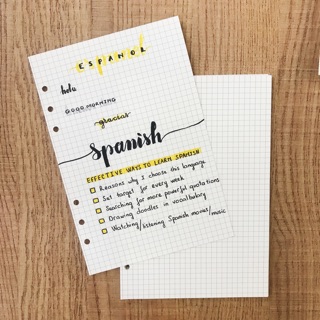 español
ESPAÑOL
hola
GOOD MORNING
gracias
spanish
EFFECTIVE WAYS TO LEARN SPANISH
Reasons why I choose this language
Set target for every week
Searching for more powerful quotations
Drawing doodles in vocalbulary
Watching/listening Spanish movies/music